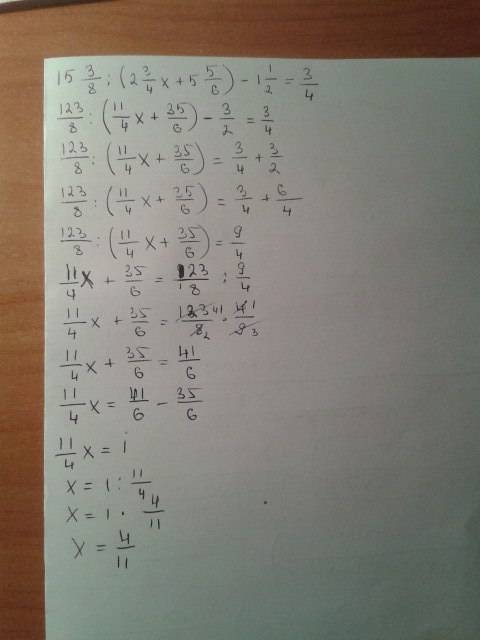 15 3/8 : (2 3/4 x + 5 5/6) - 1 1/2 = 3/4
123/8 : (11/4 x + 35/6) - 3/2 = 3/4
123/8 : (11/4 x + 35/6) = 3/4 + 3/2
123/8 : (11/4 x + 35/6) = 3/4 + 6/4
123/8 : (11/4 x + 35/6) = 9/4
11/4 x + 35/6 = 123/8 : 9/4
11/4 x + 35/6 = 123 41/8 2 · 4 1/9 3
11/4 x + 35/6 = 41/6
11/4 x = 41/6 - 35/6
11/4 x = 1
x = 1 : 11/4
x = 1 · 4/11
x = 4/11